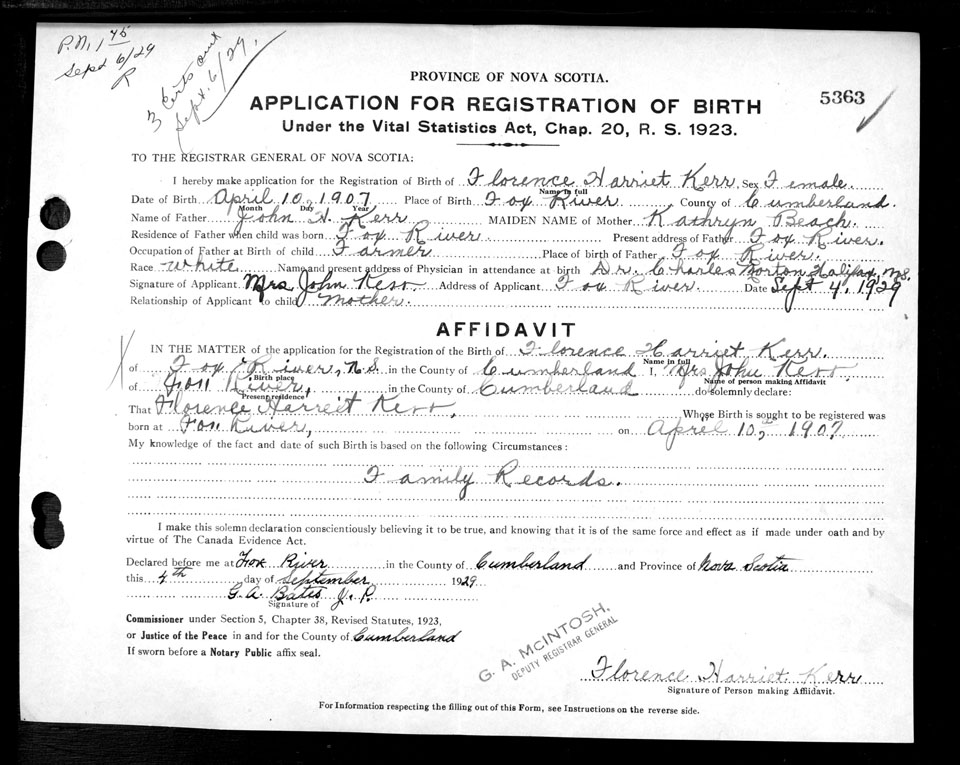 P.N. 1 45
Sept 6/29
R
3 Certs out
Sept. 6/29,
PROVINCE OF NOVA SCOTIA.
5363
APPLICATION FOR REGISTRATION OF BIRTH
Under the Vital Statistics Act, Chap. 20, R. S. 1923.
TO THE REGISTRAR GENERAL OF NOVA SCOTIA:
I hereby make application for the Registration of Birth of Florence Harriet Kerr Sex Female
Name in full
Date of Birth April 10, 1907 Place of Birth Fox River County of Cumberland.
Month Day Year
Name of Father John H. Kerr MAIDEN NAME of Mother Kathryn Beach.
Residence of Father when child was born Fox River Present address of Father Fox River.
Occupation of Father at Birth of child Farmer Place of birth of Father Fox River.
Race White Name and present address of Physician in attendance at birth Dr. Charles Morton Halifax, N.S.
Signature of Applicant Mrs John Kerr Address of Applicant Fox River Date Sept 4, 1929
Relationship of Applicant to child Mother.
AFFIDAVIT
IN THE MATTER of the application for the Registration of the Birth of Florence Harriet Kerr.
Name in full
of Fox River, N.S. in the County of Cumberland I, Mrs John Kerr,
Birth place Name of person making Affidavit
of Fox River, in the County of Cumberland do solemnly declare:
Present residence
That Florence Harriet Kerr, Whose Birth is sought to be registered was
born at Fox River, on April 10, 1907
My knowledge of the fact and date of such Birth is based on the following Circumstances:
Family Records.
I make this solemn declaration conscientiously believing it to be true, and knowing that it is of the same force and effect as if made under oath and by
virtue of The Canada Evidence Act.
Declared before me at Fox River in the County of Cumberland and Province of Nova Scotia
this 4th day of September 1929
G. A. Bates J. P.
Signature of
Commissioner under Section 5, Chapter 38, Revised Statutes, 1923,
or Justice of the Peace in and for the County of Cumberland
If sworn before a Notary Public affix seal.
G. A. MCINTOSH.
DEPUTY REGISTRAR GENERAL
Florence Harriet Kerr
Signature of Person making Affidavit.
For Information respecting the filling out of this Form, see Instructions on the reverse side.